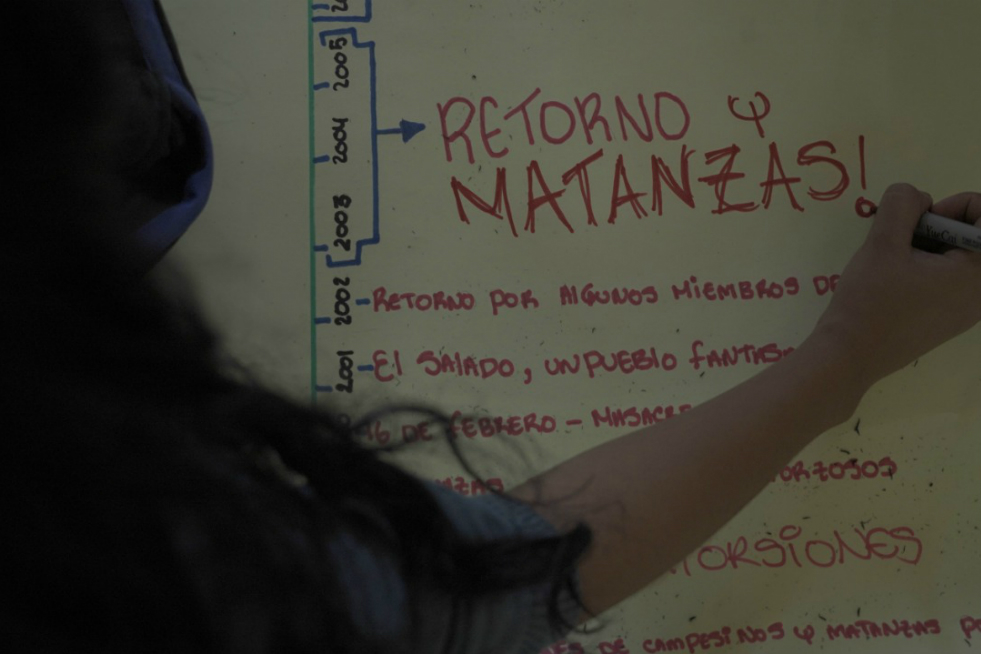 2005
2004
2003
RETORNO Y
MATANZAS!
2002
RETORNO POR ALGUNOS MIEMBROS
2001
El SALADO, UN PUEBLO
16 DE FEBRERO - MASACRE
DE CAMPESINOS Y MATANZAS